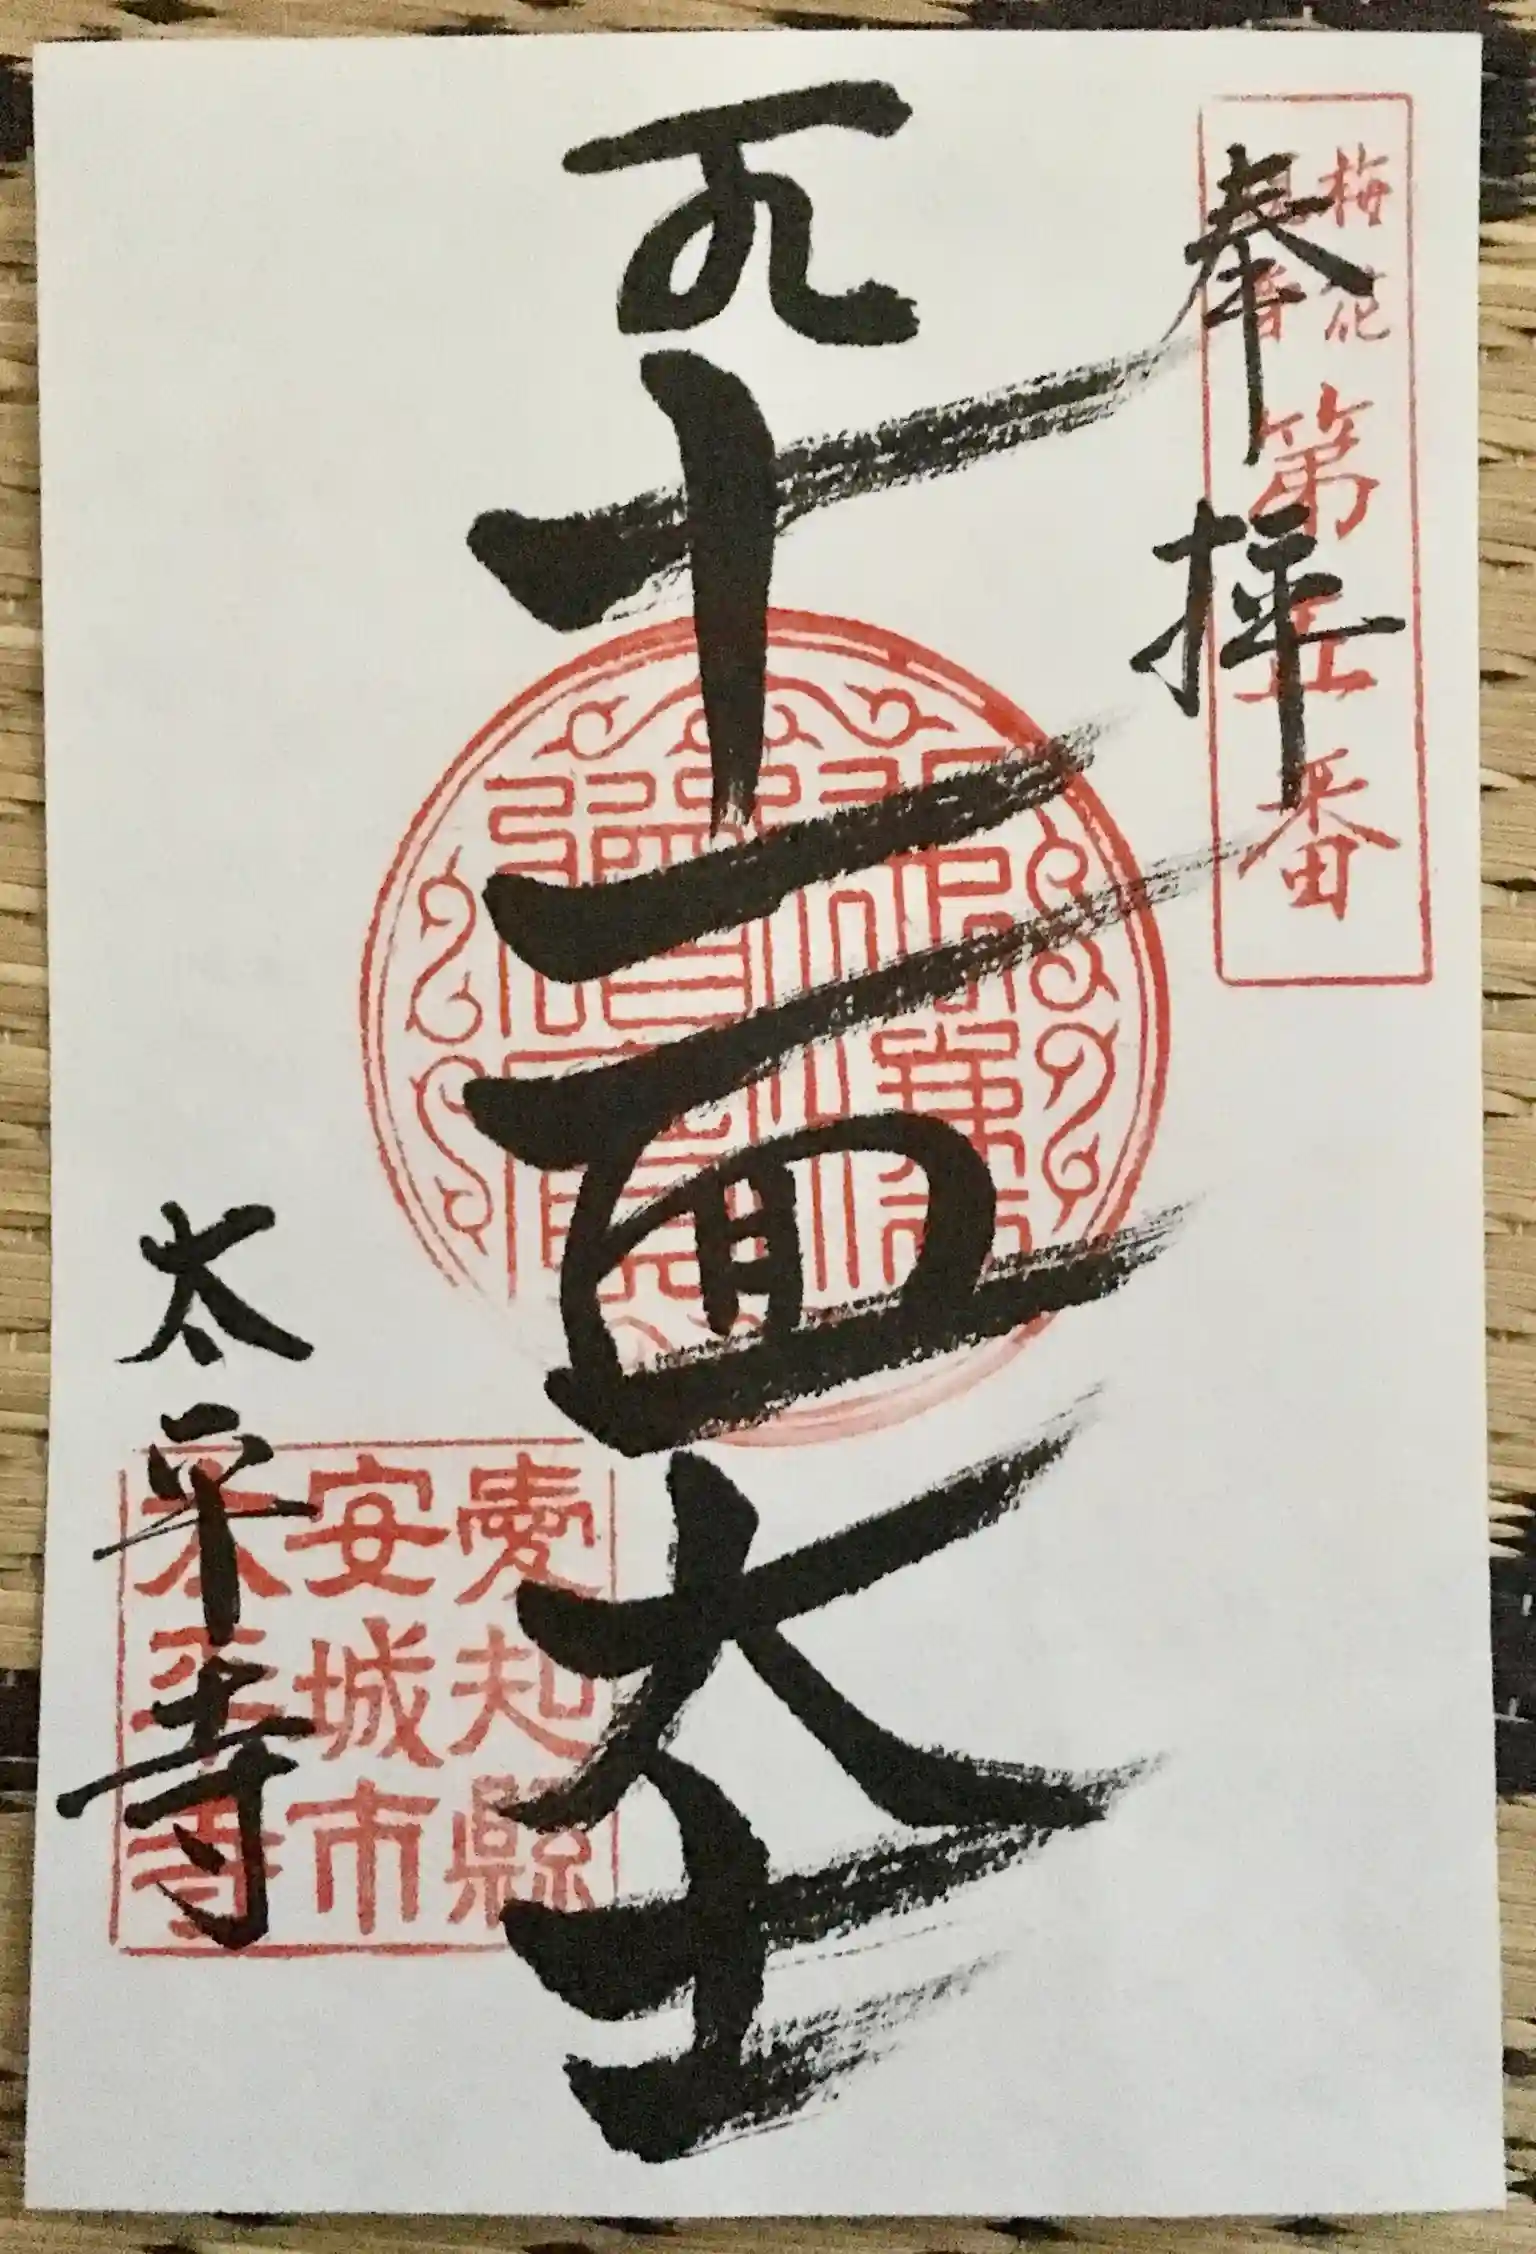 梅花
観音
第五番
奉拝
十一面大士
太平寺
愛知縣
安城市
太平寺